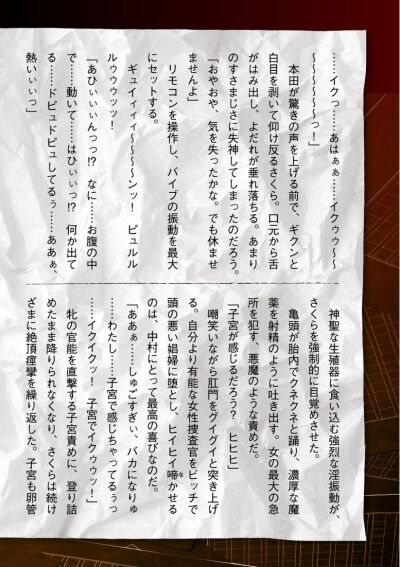 ……イクっ……あはぁぁ……イクゥゥ～
～～～～～っ！」
　本田が驚きの声を上げる前で、ギクンと
白目を剥いて仰け反るさくら。口元から舌
がはみ出し、よだれが垂れ落ちる。あまり
のすさまじさに失神してしまったのだろう。
「おやおや、気を失ったかな。でも休ませ
ませんよ」
　リモコンを操作し、バイブの振動を最大
にセットする。
　ギュイィィィ～～～～ンッ！　ビュルル
ルゥウウゥッッ！
「あひぃぃぃんっっ!?　なに……お腹の中
で……動いて……はひぃぃっ!?　何か出て
る……ドビュドビュしてるぅ……ああぁ、
熱いぃぃぃっ」
　神聖な生殖器に食い込む強烈な淫振動が、
さくらを強制的に目覚めさせた。
　亀頭が胎内でクネクネと踊り、濃厚な魔
薬を射精のように吐き出す。女の最大の急
所を犯す、悪魔のような責めだ。
「子宮が感じるだろう？　ヒヒヒ」
　嘲笑いながら肛門をグイグイと突き上げ
る。自分より有能な女性捜査官をビッチで
頭の悪い娼婦に堕とし、ヒイヒイ啼かせる
のは、中村にとって最高の喜びなのだ。
「ああぁ……しゅごすぎぃ、バカになりゅ
……わたし……子宮で感じちゃってるぅっ
……イクイクッ！　子宮でイクゥウッ！」
　牝の官能を直撃する子宮責めに、登り詰
めたまま降りられなくなり、さくらは続け
ざまに絶頂痙攣を繰り返した。子宮も卵管